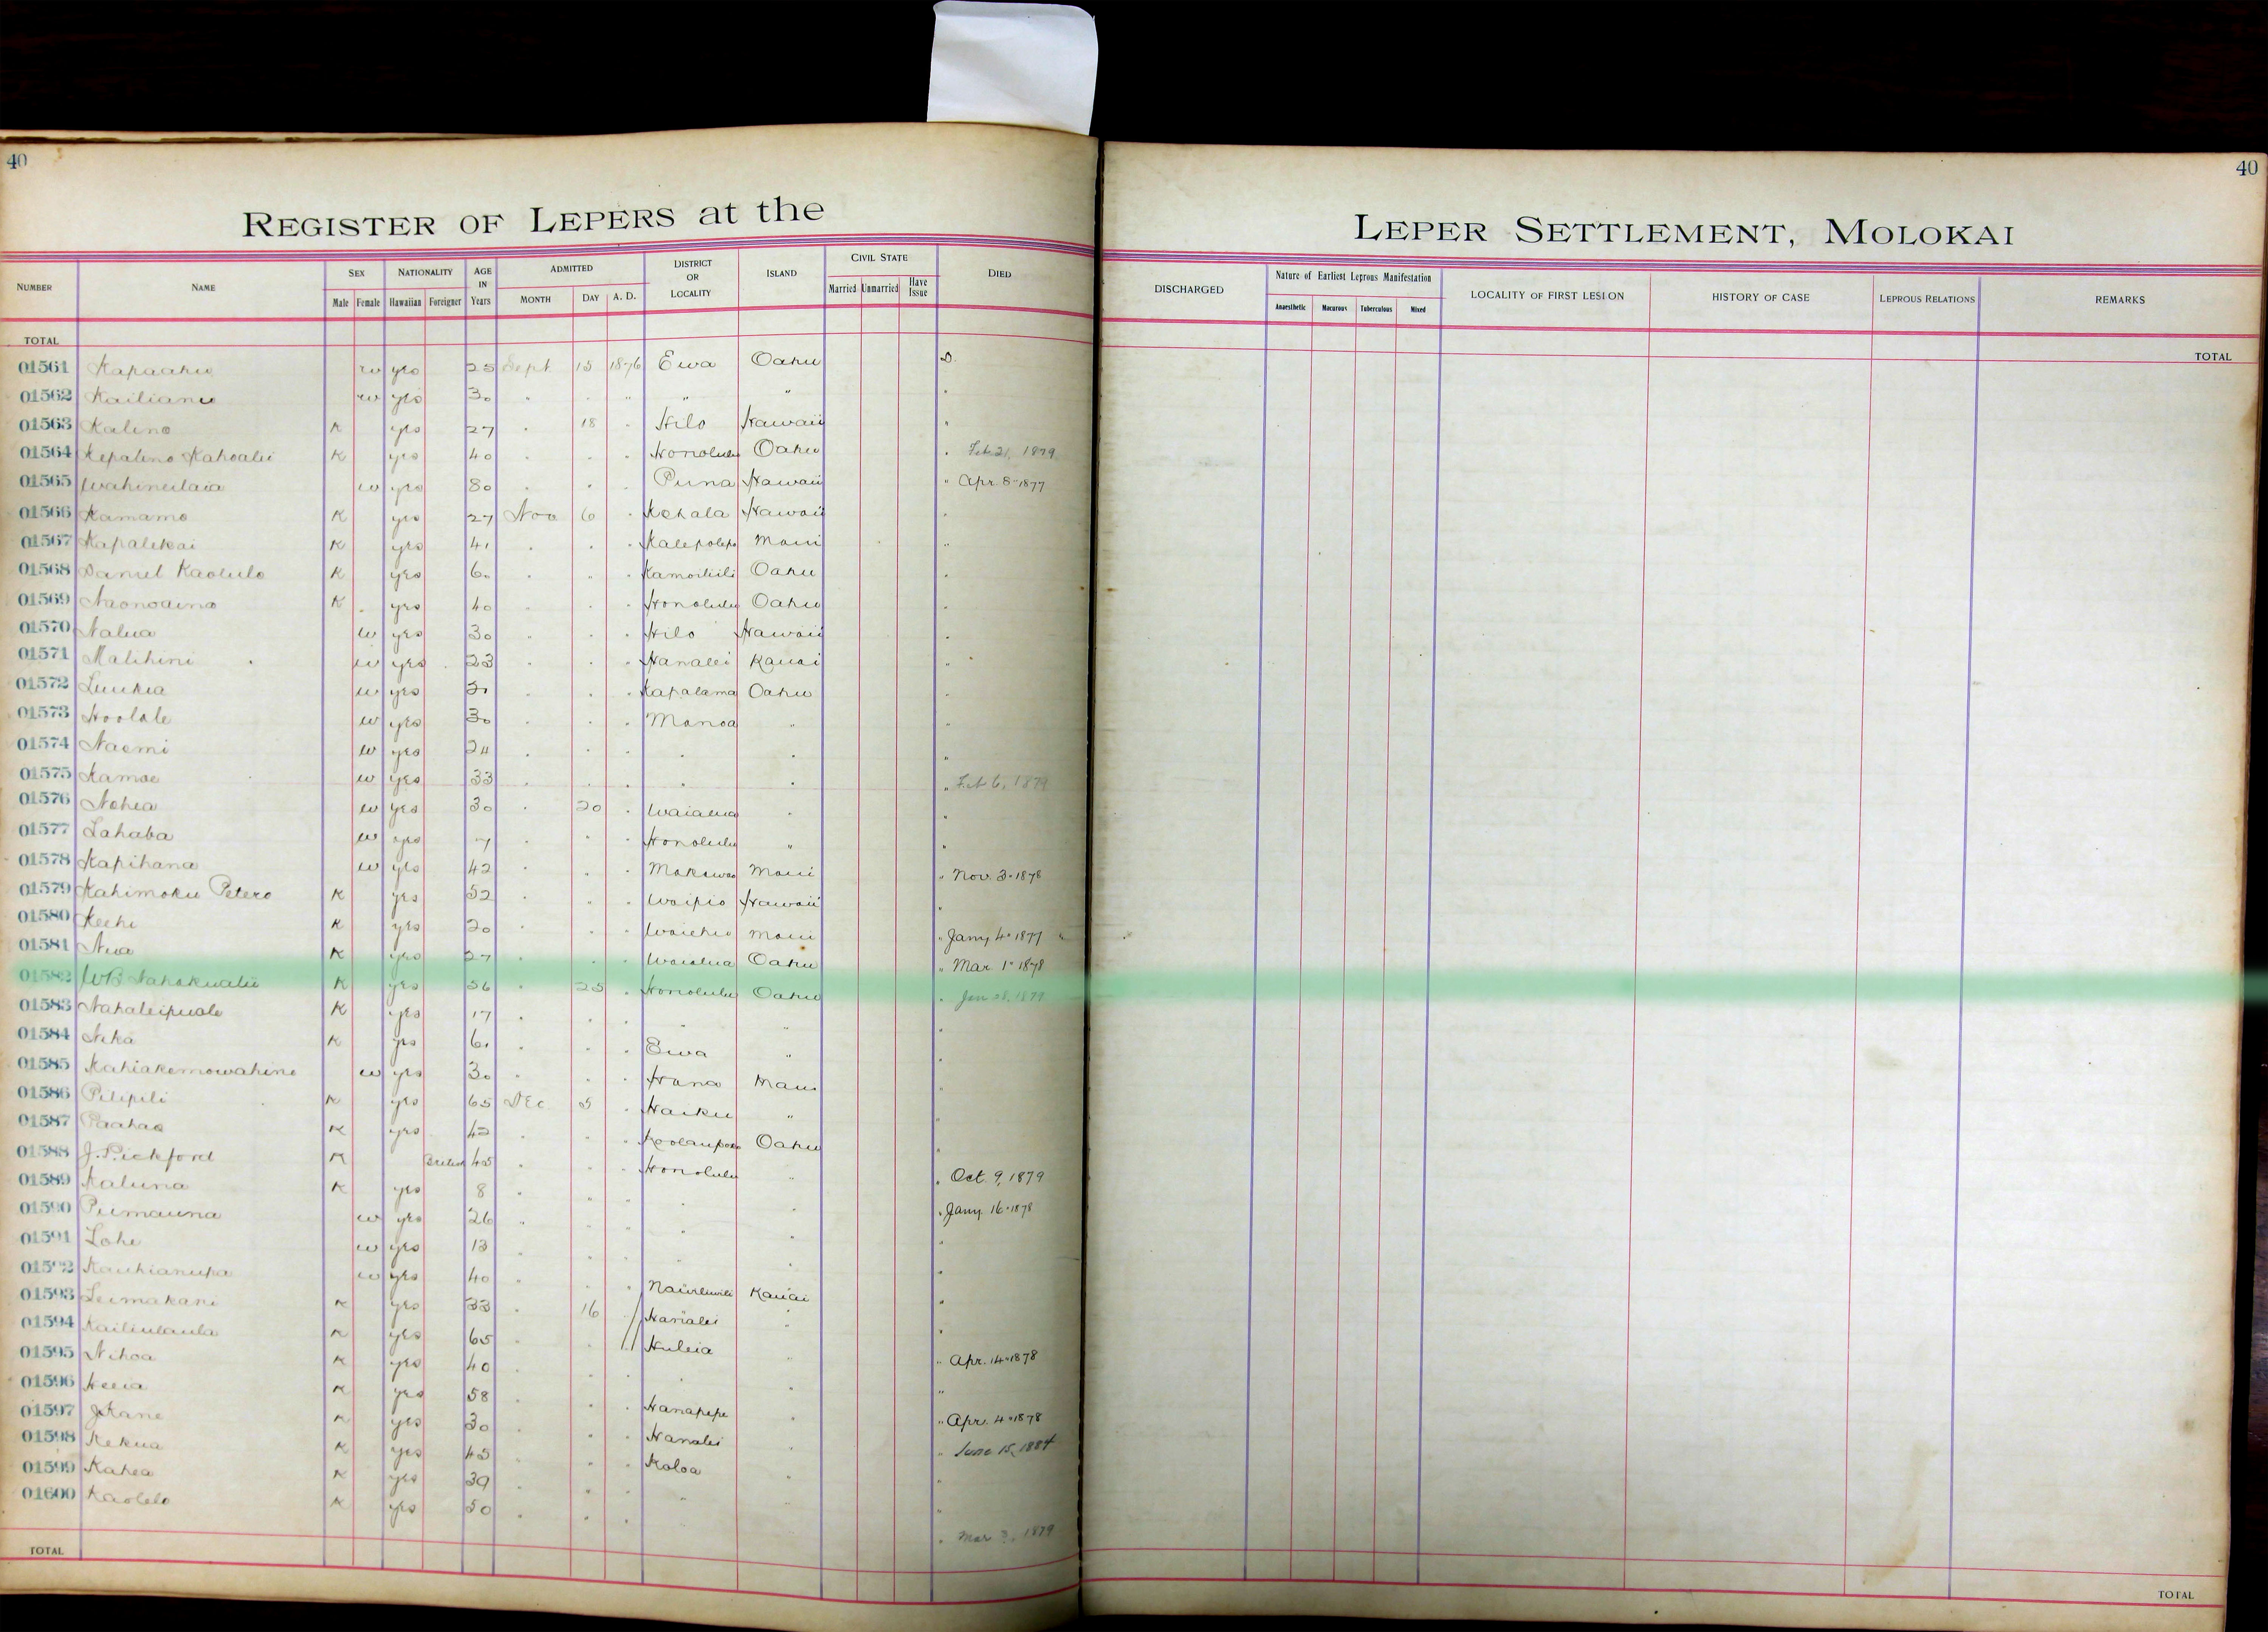 40
40
REGISTER OF LEPERS at the
LEPER SETTLEMENT, MOLOKAI
NUMBER NAME SEX Male Female NATIONALITY Hawaiian Foreigner AGE IN Years ADMITTED MONTH DAY A. D. DISTRICT OR LOCALITY ISLAND CIVIL STATE Married Unmarried Have Issue DIED
DISCHARGED Nature of Earliest Leprous Manifestation Anaesthetic Macurous Tuberculous Mixed LOCALITY OF FIRST LESION HISTORY OF CASE LEPROUS RELATIONS REMARKS
TOTAL
TOTAL
01561 Kapaahu w yes 25 Sept 15 1876 Ewa Oahu D.
01562 Kailianu w yes 30 " " " " " "
01563 Kalino K yes 27 " 18 " Hilo Hawaii "
01564 Kepalino Kahoalii K yes 40 " " " Honolulu Oahu " Feb 21, 1879
01565 Wahineilaia w yes 80 " " " Puna Hawaii " Apr. 8" 1877
01566 Kamamo K yes 27 Nov 6 " Kohala Hawaii "
01567 Kapalikai K yes 41 " " " Kalepolepo Maui "
01568 Daniel Kaolulo K yes 60 " " " Kamoiliili Oahu "
01569 K yes 40 " " " Honolulu Oahu "
01570 Nalua w yes 30 " " " Hilo Hawaii "
01571 Malihini w yes 23 " " " Hanalei Kauai "
01572 Luukia w yes " " " Kapalama Oahu "
01573 Hoolale w yes 30 " " " Manoa " "
01574 Naomi w yes 24 " " " " " "
01575 Kamae w yes 33 " " " " " " Feb 6, 1879
01576 Nohea w yes 30 " 20 " Waialua " "
01577 Lahaba w yes 7 " " " Honolulu " "
01578 Kapihana w yes 42 " " " Makawao Maui " Nov. 3" 1878
01579 Kahimoku Petero K yes 52 " " " Waipio Hawaii "
01580 Keehi K yes 20 " " " Waiehu Maui " Jany 4" 1877 "
01581 Nua K yes 27 " " " Waialua Oahu " Mar. 1" 1878
01582 WB Nahokualii K yes 56 " 25 " Honolulu Oahu " Jan 28, 1879
01583 Nahaleipuale K yes 17 " " " " " "
01584 Nika K yes 61 " " " Ewa " "
01585 Kahiakemowahine w yes 30 " " " Hana Maui "
01586 Pilipili K yes 65 Dec 5 " Haiku " "
01587 Paahao K yes 42 " " " Koolaupoko Oahu "
01588 J. Pickford K British 45 " " " Honolulu " " Oct. 9, 1879
01589 Kaluna K yes 8 " " " " " " Jany 16" 1878
01590 Puimauna w yes 26 " " " " " "
01591 Lohe w yes 13 " " " " " "
01592 Kauhianupa w yes 40 " " " Nawiliwili Kauai "
01593 Leimakani K yes 33 " 16 " Hanalei " "
01594 Kailiulaula K yes 65 " " " Huleia " " Apr. 14" 1878
01595 Nihoa K yes 40 " " " " " "
01596 Heeia K yes 58 " " " Hanapepe " " Apr. 4" 1878
01597 J Kane K yes 30 " " " Hanalei " " June 15, 1884
01598 Kekua K yes 45 " " " Koloa " "
01599 Kahea K yes 39 " " " " " "
01600 Kaolelo K yes 50 " " " " Mar 3, 1879
TOTAL
TOTAL